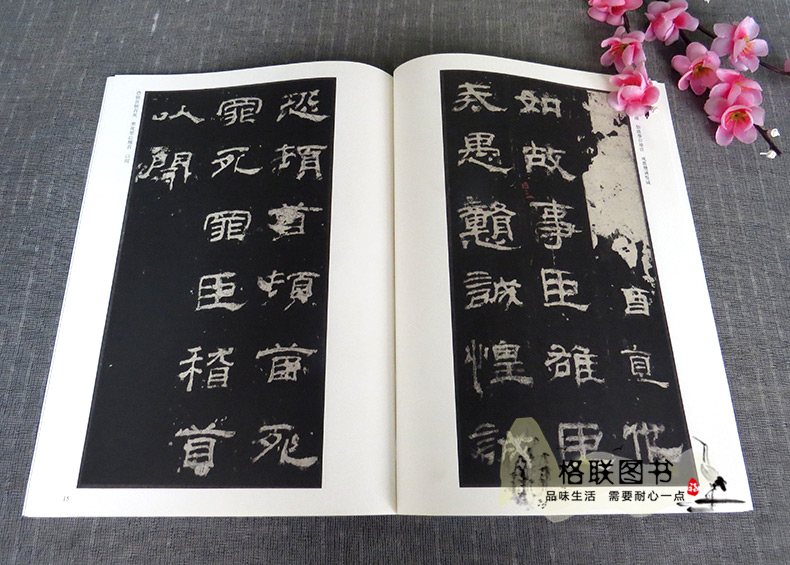 酉宜他
如故事臣雄臣
戒愚戇誠惶誠
恐頓首頓首死
罪死罪臣稽首
以聞
15
格联图书
品味生活 需要耐心一点